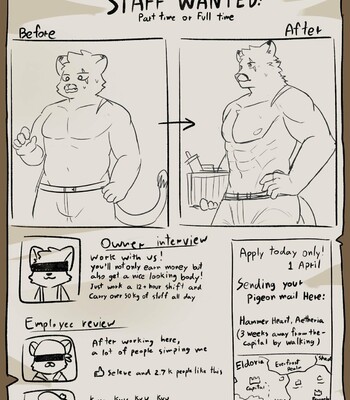 STAFF WANTED!
Part time or Full time
Before
After
Owner interview
Work with us!
you'll not only earn money but
also get a nice looking body!
Just work a 12+ hour shift and
Carry over 50kg of stuff all day
Employee review
After working here,
a lot of people simping me
Seleve and 2.7k people like this
Apply today only!
1 April
Sending your
Pigeon mail Here:
Hammer Heart, Aetheria
(3 weeks away from the-
capital by walking)
Eldoria
Everfrost
Capital